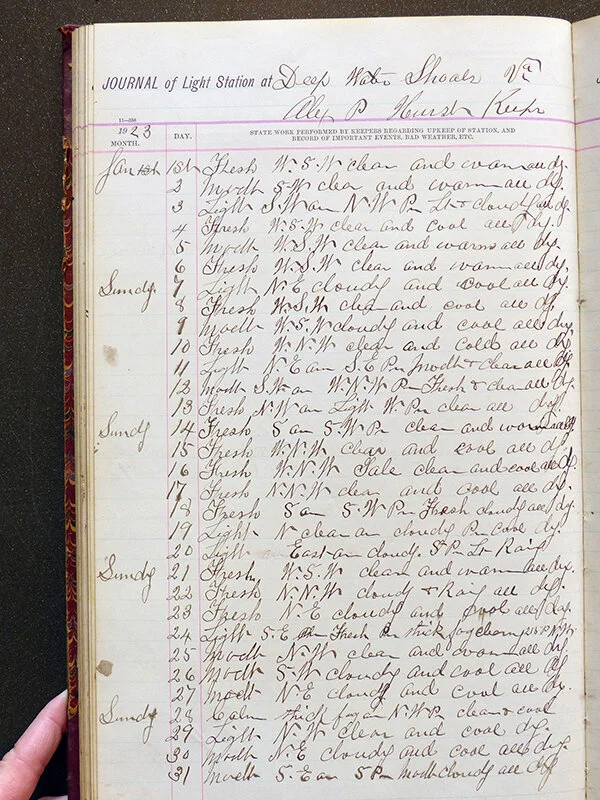 JOURNAL of Light Station at Deep Water Shoals Va
Alex P Hurst Keeper
11—338
1923
MONTH. DAY. STATE WORK PERFORMED BY KEEPERS REGARDING UPKEEP OF STATION, AND
RECORD OF IMPORTANT EVENTS, BAD WEATHER, ETC.
Jan 1st 1st Fresh W.S.W clear and warm all dy.
2 Modt S.W clear and warm all dy.
3 Light S.W am N.W Pm Lt & cloudy all dy
4 Fresh W.S.W clear and cool all dy.
5 Modt W.S.W clear and warm all dy.
6 Fresh W.S.W clear and warm all dy.
Sundy. 7 Light N.E cloudy and cool all dy.
8 Fresh W.S.W clear and cool all dy.
9 Modt W.S.W cloudy and cool all dy.
10 Fresh W.N.W clear and cold all dy.
11 Light N.E am S.E Pm Modt & clear all dy.
12 Modt S.W am W.N.W Pm Fresh & clear all dy.
13 Fresh N.W am Light W.Pm clear all dy
Sundy 14 Fresh S am S.W Pm clear and warm all dy
15 Fresh W.N.W clear and cool all dy.
16 Fresh W.N.W Gale clear and cool all dy.
17 Fresh N.N.W clear and cool all dy.
18 Fresh S am S.W Pm Fresh cloudy all dy
19 Light N clear am cloudy Pm cool dy.
20 Light East am cloudy. S Pm Lt Rain
Sundy 21 Fresh W.S.W clear and warm all dy.
22 Fresh N.N.W cloudy & Rain all dy.
23 Fresh N.E cloudy and cool all dy.
24 Light S.E Fresh Pm thick fog
25 Modt N.W clear and warm all dy.
26 Modt S.W cloudy and cool all dy
27 Modt N.E cloudy and cool all dy.
Sundy 28 Calm thick fog am N.W Pm clear & cool
29 Light N.W clear and cool dy.
30 Modt N.E cloudy and cool all dy.
31 Modt S.E am S Pm Modt cloudy all dy